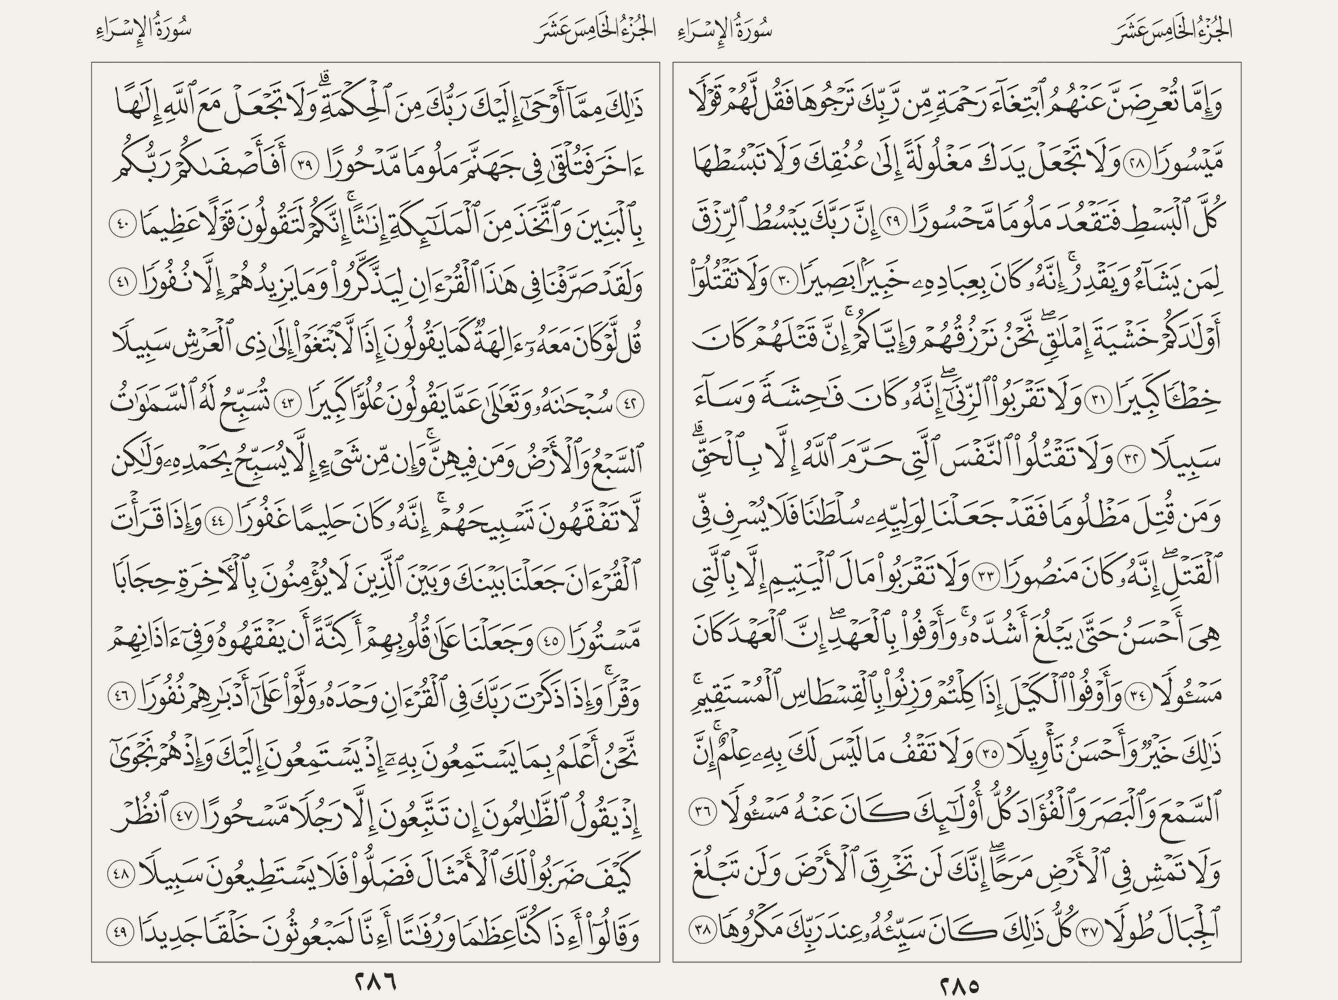 الجُزْءُ الخَامِسَ عَشَرَ
سُورَةُ الإِسْرَاءِ
وَإِمَّا تُعْرِضَنَّ عَنْهُمُ ٱبْتِغَآءَ رَحْمَةٍ مِّن رَّبِّكَ تَرْجُوهَا فَقُل لَّهُمْ قَوْلًا
مَّيْسُورًا ٢٨ وَلَا تَجْعَلْ يَدَكَ مَغْلُولَةً إِلَىٰ عُنُقِكَ وَلَا تَبْسُطْهَا
كُلَّ ٱلْبَسْطِ فَتَقْعُدَ مَلُومًا مَّحْسُورًا ٢٩ إِنَّ رَبَّكَ يَبْسُطُ ٱلرِّزْقَ
لِمَن يَشَآءُ وَيَقْدِرُ ۚ إِنَّهُۥ كَانَ بِعِبَادِهِۦ خَبِيرًۢا بَصِيرًا ٣٠ وَلَا تَقْتُلُوٓا۟
أَوْلَٰدَكُمْ خَشْيَةَ إِمْلَٰقٍ ۖ نَّحْنُ نَرْزُقُهُمْ وَإِيَّاكُمْ ۚ إِنَّ قَتْلَهُمْ كَانَ
خِطْـًٔا كَبِيرًا ٣١ وَلَا تَقْرَبُوا۟ ٱلزِّنَىٰٓ ۖ إِنَّهُۥ كَانَ فَٰحِشَةً وَسَآءَ
سَبِيلًا ٣٢ وَلَا تَقْتُلُوا۟ ٱلنَّفْسَ ٱلَّتِى حَرَّمَ ٱللَّهُ إِلَّا بِٱلْحَقِّ ۗ
وَمَن قُتِلَ مَظْلُومًا فَقَدْ جَعَلْنَا لِوَلِيِّهِۦ سُلْطَٰنًا فَلَا يُسْرِف فِّى
ٱلْقَتْلِ ۖ إِنَّهُۥ كَانَ مَنصُورًا ٣٣ وَلَا تَقْرَبُوا۟ مَالَ ٱلْيَتِيمِ إِلَّا بِٱلَّتِى
هِىَ أَحْسَنُ حَتَّىٰ يَبْلُغَ أَشُدَّهُۥ ۚ وَأَوْفُوا۟ بِٱلْعَهْدِ ۖ إِنَّ ٱلْعَهْدَ كَانَ
مَسْـُٔولًا ٣٤ وَأَوْفُوا۟ ٱلْكَيْلَ إِذَا كِلْتُمْ وَزِنُوا۟ بِٱلْقِسْطَاسِ ٱلْمُسْتَقِيمِ ۚ
ذَٰلِكَ خَيْرٌ وَأَحْسَنُ تَأْوِيلًا ٣٥ وَلَا تَقْفُ مَا لَيْسَ لَكَ بِهِۦ عِلْمٌ ۚ إِنَّ
ٱلسَّمْعَ وَٱلْبَصَرَ وَٱلْفُؤَادَ كُلُّ أُو۟لَٰٓئِكَ كَانَ عَنْهُ مَسْـُٔولًا ٣٦
وَلَا تَمْشِ فِى ٱلْأَرْضِ مَرَحًا ۖ إِنَّكَ لَن تَخْرِقَ ٱلْأَرْضَ وَلَن تَبْلُغَ
ٱلْجِبَالَ طُولًا ٣٧ كُلُّ ذَٰلِكَ كَانَ سَيِّئُهُۥ عِندَ رَبِّكَ مَكْرُوهًا ٣٨
٢٨٥
الجُزْءُ الخَامِسَ عَشَرَ
سُورَةُ الإِسْرَاءِ
ذَٰلِكَ مِمَّآ أَوْحَىٰٓ إِلَيْكَ رَبُّكَ مِنَ ٱلْحِكْمَةِ ۗ وَلَا تَجْعَلْ مَعَ ٱللَّهِ إِلَٰهًا
ءَاخَرَ فَتُلْقَىٰ فِى جَهَنَّمَ مَلُومًا مَّدْحُورًا ٣٩ أَفَأَصْفَىٰكُمْ رَبُّكُم
بِٱلْبَنِينَ وَٱتَّخَذَ مِنَ ٱلْمَلَٰٓئِكَةِ إِنَٰثًا ۚ إِنَّكُمْ لَتَقُولُونَ قَوْلًا عَظِيمًا ٤٠
وَلَقَدْ صَرَّفْنَا فِى هَٰذَا ٱلْقُرْءَانِ لِيَذَّكَّرُوا۟ وَمَا يَزِيدُهُمْ إِلَّا نُفُورًا ٤١
قُل لَّوْ كَانَ مَعَهُۥٓ ءَالِهَةٌ كَمَا يَقُولُونَ إِذًا لَّٱبْتَغَوْا۟ إِلَىٰ ذِى ٱلْعَرْشِ سَبِيلًا
٤٢ سُبْحَٰنَهُۥ وَتَعَٰلَىٰ عَمَّا يَقُولُونَ عُلُوًّا كَبِيرًا ٤٣ تُسَبِّحُ لَهُ ٱلسَّمَٰوَٰتُ
ٱلسَّبْعُ وَٱلْأَرْضُ وَمَن فِيهِنَّ ۚ وَإِن مِّن شَىْءٍ إِلَّا يُسَبِّحُ بِحَمْدِهِۦ وَلَٰكِن
لَّا تَفْقَهُونَ تَسْبِيحَهُمْ ۗ إِنَّهُۥ كَانَ حَلِيمًا غَفُورًا ٤٤ وَإِذَا قَرَأْتَ
ٱلْقُرْءَانَ جَعَلْنَا بَيْنَكَ وَبَيْنَ ٱلَّذِينَ لَا يُؤْمِنُونَ بِٱلْءَاخِرَةِ حِجَابًا
مَّسْتُورًا ٤٥ وَجَعَلْنَا عَلَىٰ قُلُوبِهِمْ أَكِنَّةً أَن يَفْقَهُوهُ وَفِىٓ ءَاذَانِهِمْ
وَقْرًا ۚ وَإِذَا ذَكَرْتَ رَبَّكَ فِى ٱلْقُرْءَانِ وَحْدَهُۥ وَلَّوْا۟ عَلَىٰٓ أَدْبَٰرِهِمْ نُفُورًا ٤٦
نَّحْنُ أَعْلَمُ بِمَا يَسْتَمِعُونَ بِهِۦٓ إِذْ يَسْتَمِعُونَ إِلَيْكَ وَإِذْ هُمْ نَجْوَىٰٓ
إِذْ يَقُولُ ٱلظَّٰلِمُونَ إِن تَتَّبِعُونَ إِلَّا رَجُلًا مَّسْحُورًا ٤٧ ٱنظُرْ
كَيْفَ ضَرَبُوا۟ لَكَ ٱلْأَمْثَالَ فَضَلُّوا۟ فَلَا يَسْتَطِيعُونَ سَبِيلًا ٤٨
وَقَالُوٓا۟ أَءِذَا كُنَّا عِظَٰمًا وَرُفَٰتًا أَءِنَّا لَمَبْعُوثُونَ خَلْقًا جَدِيدًا ٤٩
٢٨٦